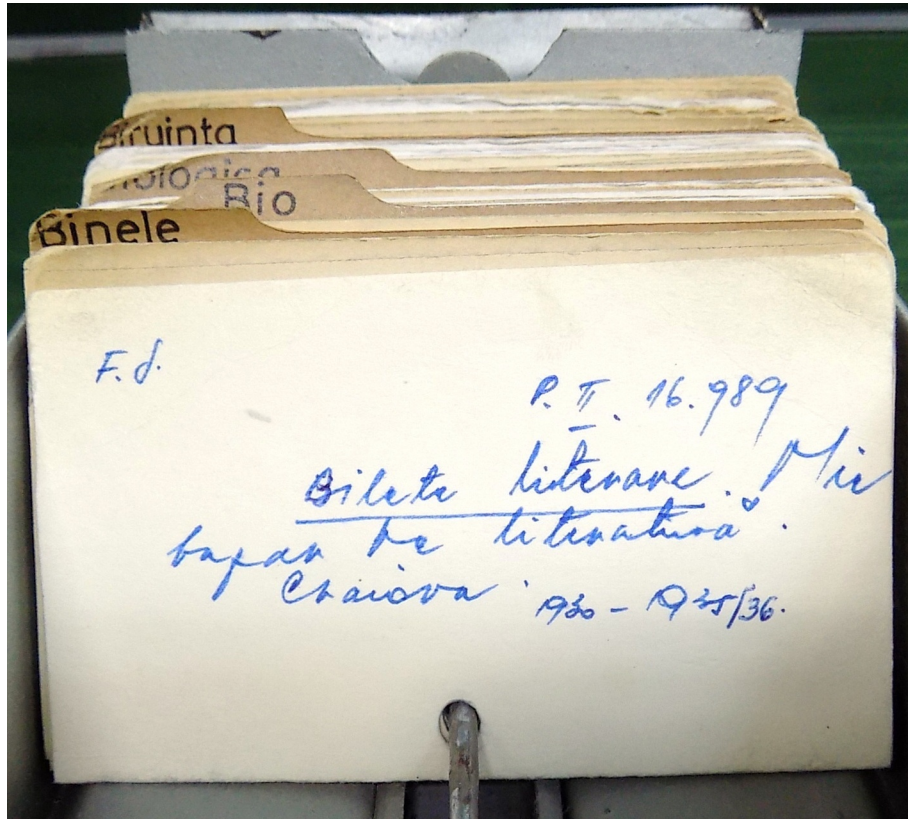 Biruinta
nologica
Bio
Binele
F. d.
P. II. 16.989
Bilete literare. Mic
de literatură.
Craiova. 1930 - 1935/36.